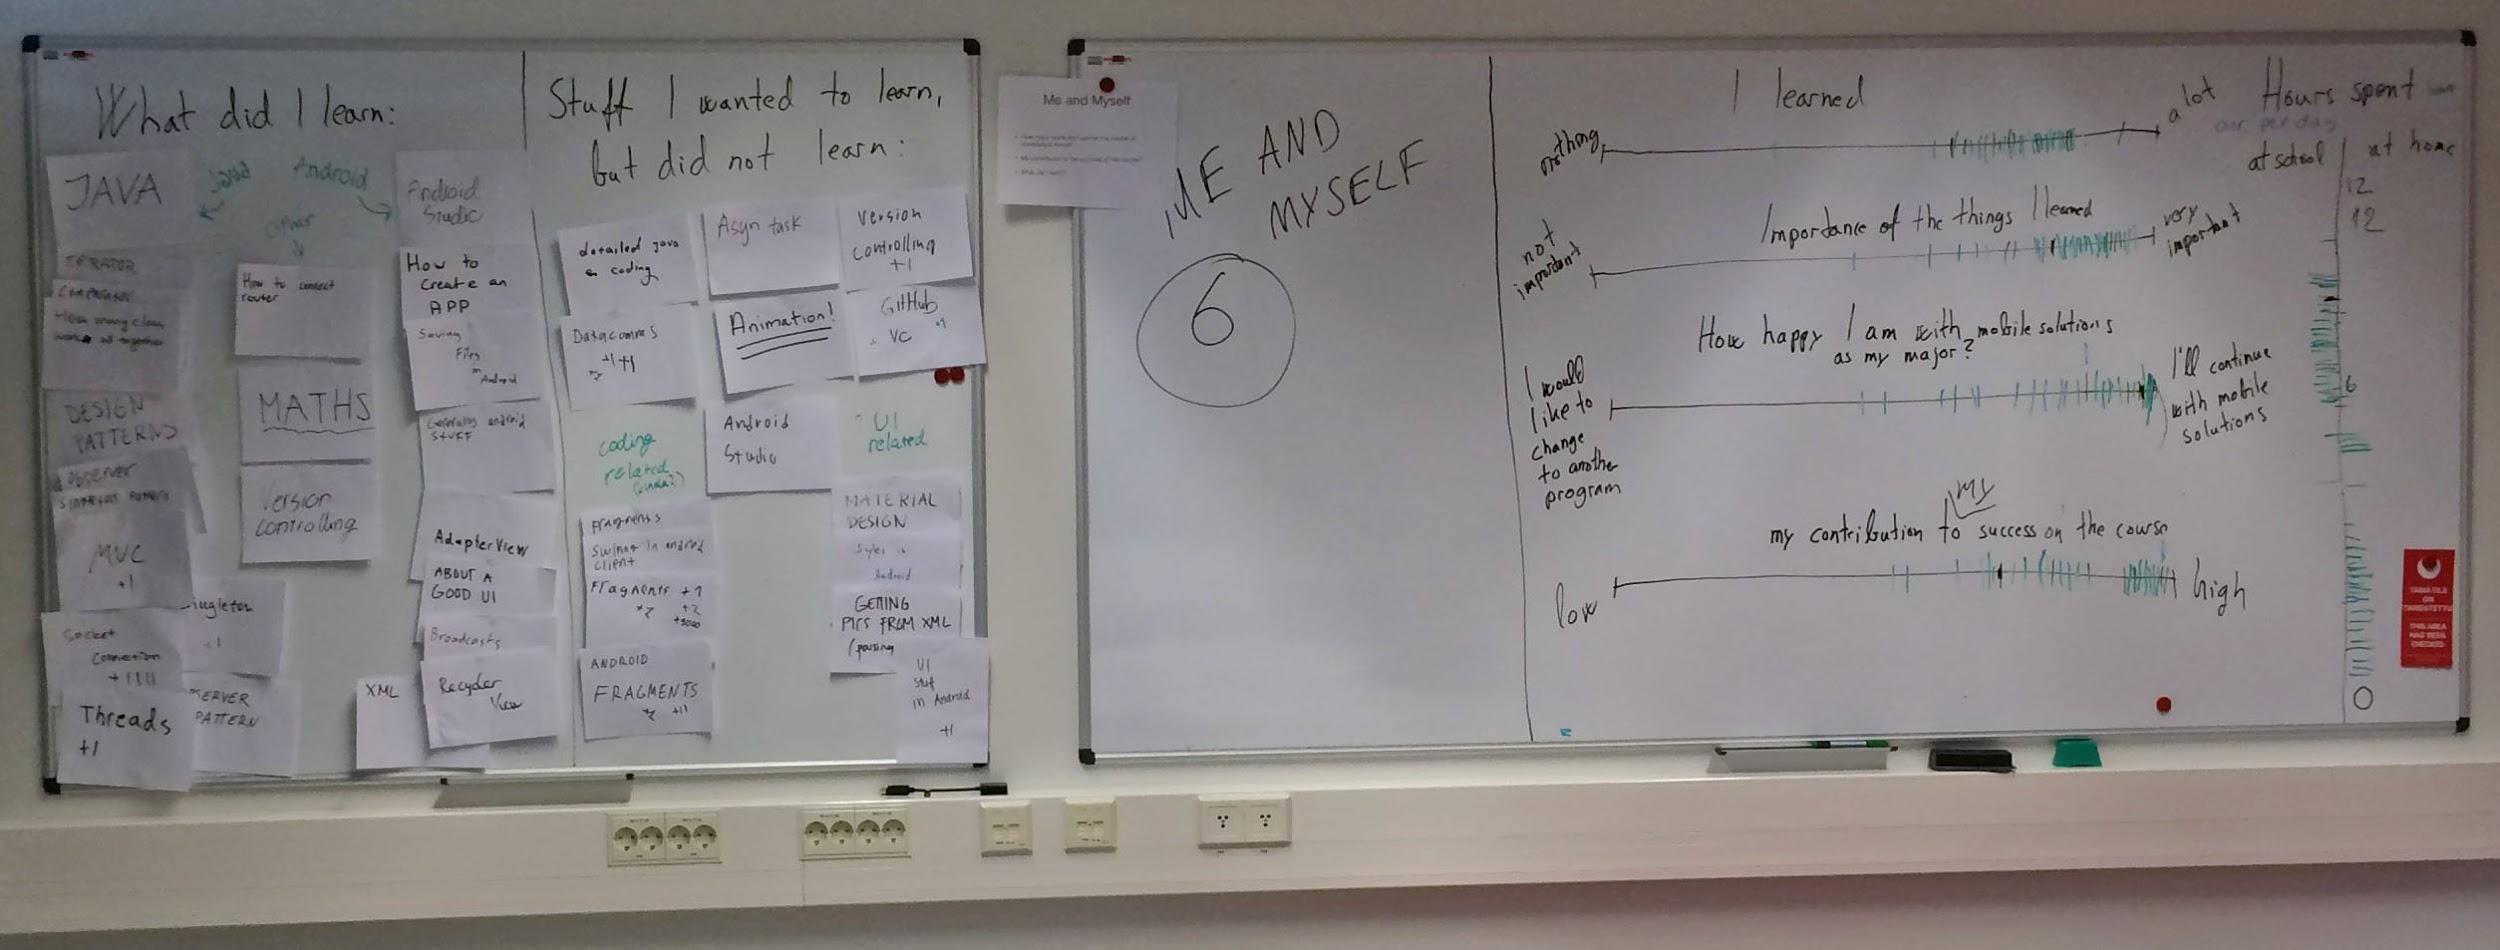 What did I learn:
Java
Android
other
JAVA
ITERATOR
Comparator
How many class
works all together
DESIGN
PATTERNS
Observer
Singleton Pattern
MVC
+1
Singleton
+1
Socket
Connection
+1111
Threads
+1
PATTERN
How to connect
router
MATHS
Version
controlling
XML
Android
Studio
How to
create an
APP
Saving
Files
in
Android
Generally android
stuff
AdapterView
ABOUT A
GOOD UI
Broadcasts
Recycler
View
Stuff I wanted to learn,
but did not learn:
detailed java
coding
Asyn task
version
controlling
+1
Datacomms
+1+1
Animation!
GitHub
VC +1
coding
related
Android
Studio
UI
related
Fragments
Swinng in android
client
Fragments +1
+2
+5000
ANDROID
FRAGMENTS
+11
MATERIAL
DESIGN
Styles in
Android
GETTING
PICS FROM XML
(parsing
UI
stuf
in Android
+1
Me and Myself
ME AND
MYSELF
6
I learned
nothing
a lot
Importance of the things I learned
not
important
very
important
How happy I am with mobile solutions
as my major?
I would
like to
change
to another
program
I'll continue
with mobile
solutions
my
my contribution to success on the course
low
high
Hours spent
per day
at school
at home
12
12
6
0
TÄMÄ TILA
ON
TARKASTETTU
THIS AREA
HAS BEEN
CHECKED